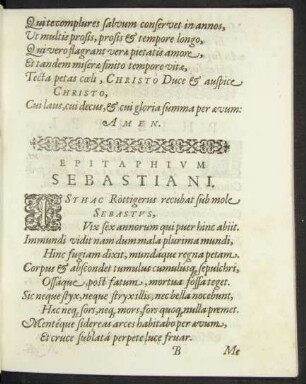 Qui te complures salvum conservet in annos,
Ut multis prosis, prosis & tempore longo,
Qui vero flagrant vera pietatis amore,
Et tandem misera finito tempore vita,
Tecta petas cœli, CHRISTO Duce & auspice
CHRISTO,
Cui laus, cui decus, & cui gloria summa per ævum:
AMEN.
EPITAPHIVM
SEBASTIANI.
ISTHAC Röttigerus recubat sub mole
SEBASTVS,
Vix sex annorum qui puer hinc abiit.
Immundi vidit nam dum mala plurima mundi,
Hinc fugiam dixit, mundaque regna petam.
Corpus & abscondet tumulus cumulusq; sepulchri,
Ossaque post fatum, mortua fossa teget.
Sic neque styx, neque stryx illi, nec bella nocebunt,
Hæc neq; sors, neq; mors, fors quoq; nulla premet.
Mentéque sidereas arces habitabo per ævum,
Et cruce sublatá perpete luce fruar.
B Me